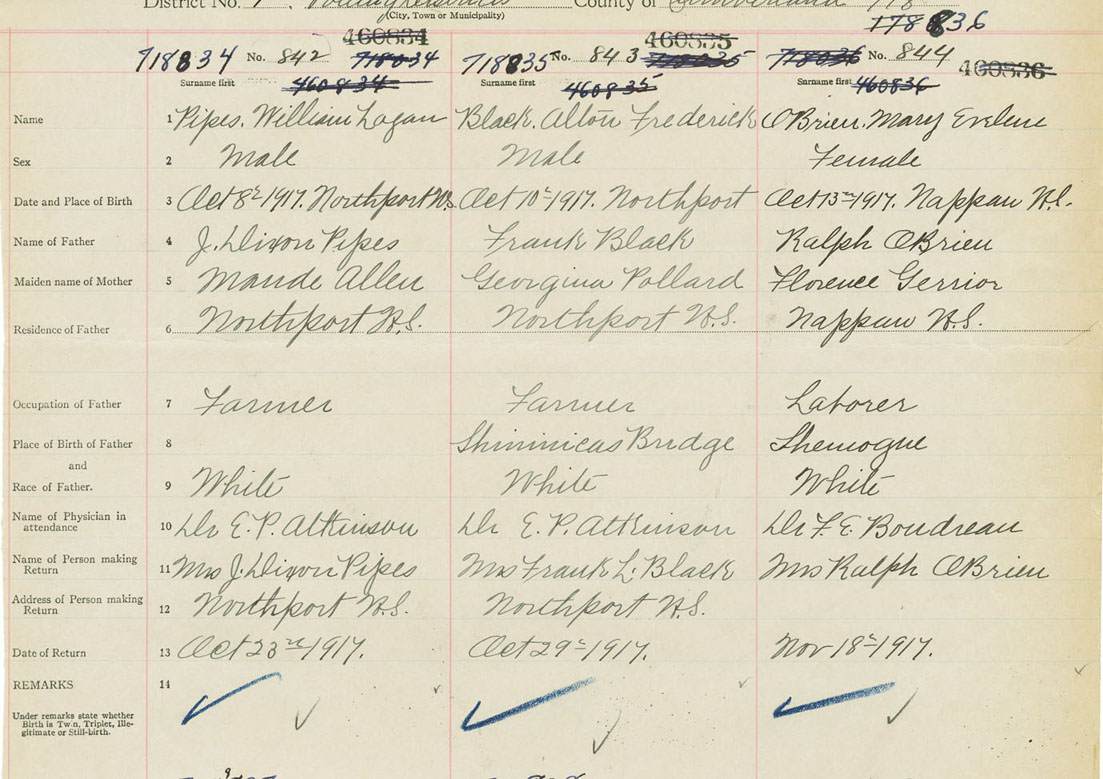 District No. County of Cumberland
(City, Town or Municipality)
178836
460834 460835
718834 No. 842 718034 718835 No. 843 718035 718036 No. 844 460836
Surname first 460834 Surname first 460835 Surname first 460836
Name 1 Pipes. William Logan Black. Alton Frederick O'Brien. Mary Evelene
Sex 2 Male Male Female
Date and Place of Birth 3 Oct 8th 1917. Northport N.S. Oct 10th 1917. Northport Oct 13th 1917. Nappan N.S.
Name of Father 4 J. Dixon Pipes Frank Black Ralph O'Brien
Maiden name of Mother 5 Maude Allen Georgina Pollard Florence Gerrior
Residence of Father 6 Northport N.S. Northport N.S. Nappan N.S.
Occupation of Father 7 Farmer Farmer Laborer
Place of Birth of Father 8 Shininicas Bridge Shemogue
and
Race of Father. 9 White White White
Name of Physician in attendance 10 Dr E. P. Atkinson Dr E. P. Atkinson Dr F. E. Boudreau
Name of Person making Return 11 Mrs J. Dixon Pipes Mrs Frank L. Black Mrs Ralph O'Brien
Address of Person making Return 12 Northport N.S. Northport N.S.
Date of Return 13 Oct 23rd 1917. Oct 29th 1917. Nov 18th 1917.
REMARKS 14
Under remarks state whether
Birth is Twin, Triplet, Ille-
gitimate or Still-birth.